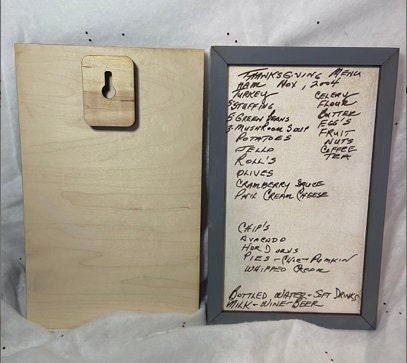 THANKSGIVING MENU
HAM NOV, 2004
TURKEY
STUFFING
5 GREEN BEANS
3 MUSHROOM SOUP
POTATOES
JELLO
ROLL'S
OLIVES
CRAMBERRY SAUCE
PHIL CREAM CHEESE
CELERY
FLOUR
BUTTER
EGG'S
FRUIT
NUTS
COFFEE
TEA
CHIP'S
AVACADO
HOR D URVS
PIES - CHOC - PUMKIN
WHIPPED CREAM
BOTTLED WATER - SOFT DRINKS
MILK - WINE - BEER